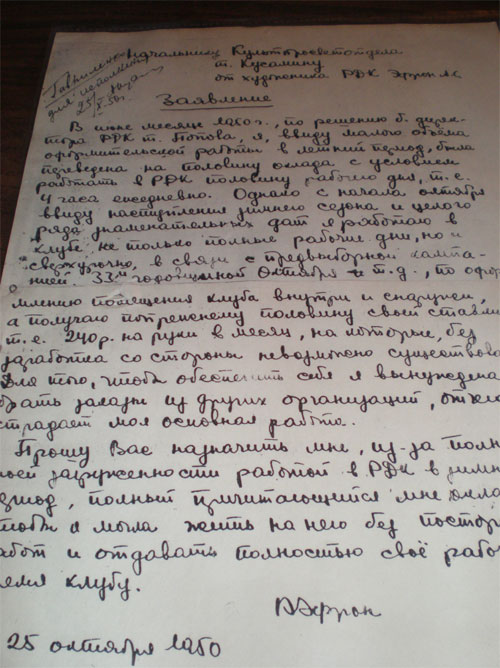 Гавриленко
для исполнения
25/X.50г.
Начальнику Культпросветотдела
т. Кусамину
от художника РДК Эфрон А.С.
Заявление
В июне месяце 1950 г., по решению б. дирек-
тора РДК т. Попова, я, ввиду малого объёма
оформительской работы в летний период, была
переведена на половину оклада с условием
работать в РДК половину рабочего дня, т.е.
4 часа ежедневно. Однако с начала октября
ввиду наступления зимнего сезона и целого
ряда знаменательных дат я работаю в
клубе не только полные рабочие дни, но и
сверхурочно, в связи с предвыборной кампа-
нией, 33-й годовщиной Октября и т.д., по офор
млению помещения клуба внутри и снаружи,
а получаю попрежнему половину своей ставки
т.е. 240 р. на руки в месяц, на которые, без
заработка со стороны невозможно существова
Для того, чтобы обеспечить себя я вынуждена
брать заказы из других организаций, от чего
страдает моя основная работа.
Прошу Вас назначить мне, из-за полн
ной загруженности работой в РДК в зимн
период, полный причитающийся мне окла
чтобы я могла жить на него без постор
работ и отдавать полностью своё рабо
время клубу.
АЭфрон
25 октября 1950